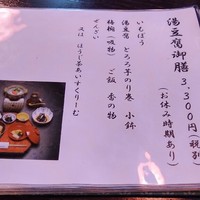 湯豆腐御膳 3,300円(税別)
(お休み時期あり)
いもぼう
湯豆腐 とろろ芋のり巻 小鉢
梅椀(吸物) ご飯 香の物
ぜんざい
又は ほうじ茶あいすくりーむ